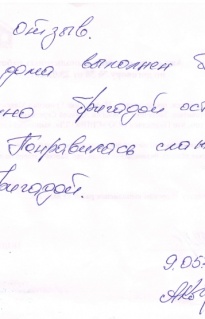 отзыв.
дома выполнен б
но бригадой ост
Понравилась сла
бригадой.
9.05.